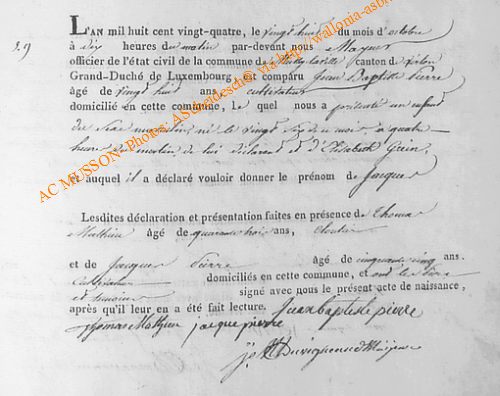 L'AN mil huit cent vingt-quatre, le vingt huit du mois d'octobre
à dix heures du matin par-devant nous Mayeur
officier de l'état civil de la commune de canton de Virton
Grand-Duché de Luxembourg est comparu Jean Baptiste Pierre
âgé de vingt huit ans cultivateur
domicilié en cette commune, le quel nous a présenté un enfant
du sexe masculin né le vingt du mois à quatre
heures du matin de lui déclarant et d'Elisabeth
et auquel il a déclaré vouloir donner le prénom de Jacques
Lesdites déclaration et présentation faites en présence de Thomas
Mathieu âgé de quarante trois ans, cloutier
et de Jacques Pierre âgé de cinquante cinq ans.
cultivateur domiciliés en cette commune, et ont les
et témoins signé avec nous le présent acte de naissance,
après qu'il leur en a été fait lecture. Jean baptiste pierre
thomas Mathieu jacque pierre
AC MUSSON-Photos: AS Luxembourg via http://wallonia-asbl